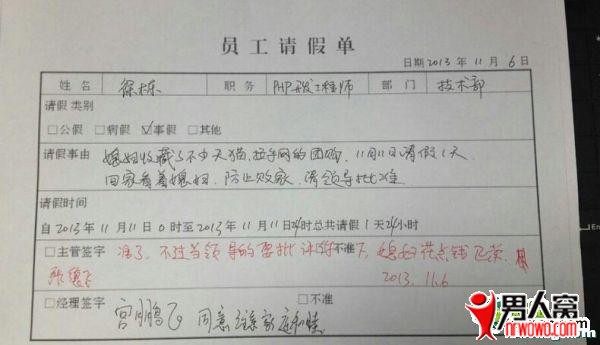 员工请假单
日期2013年11月6日
姓名 徐栋 职务 PHP开发工程师 部门 技术部
请假类别
□公假 □病假 ☑事假 □其他
请假事由 媳妇收藏了不少天猫,拉手网的团购,11月11日请假1天
回家看着媳妇,防止败家,请领导批准
请假时间
自2013年11月11日0时至2013年11月11日24时总共请假1天24小时
□主管签字 准了,不过当领导的要批评你下,媳妇花点钱 □不准
2013.11.6
□经理签字 宫鹏飞 同意 家庭和睦 □不准
男人窝
nrwowo.com